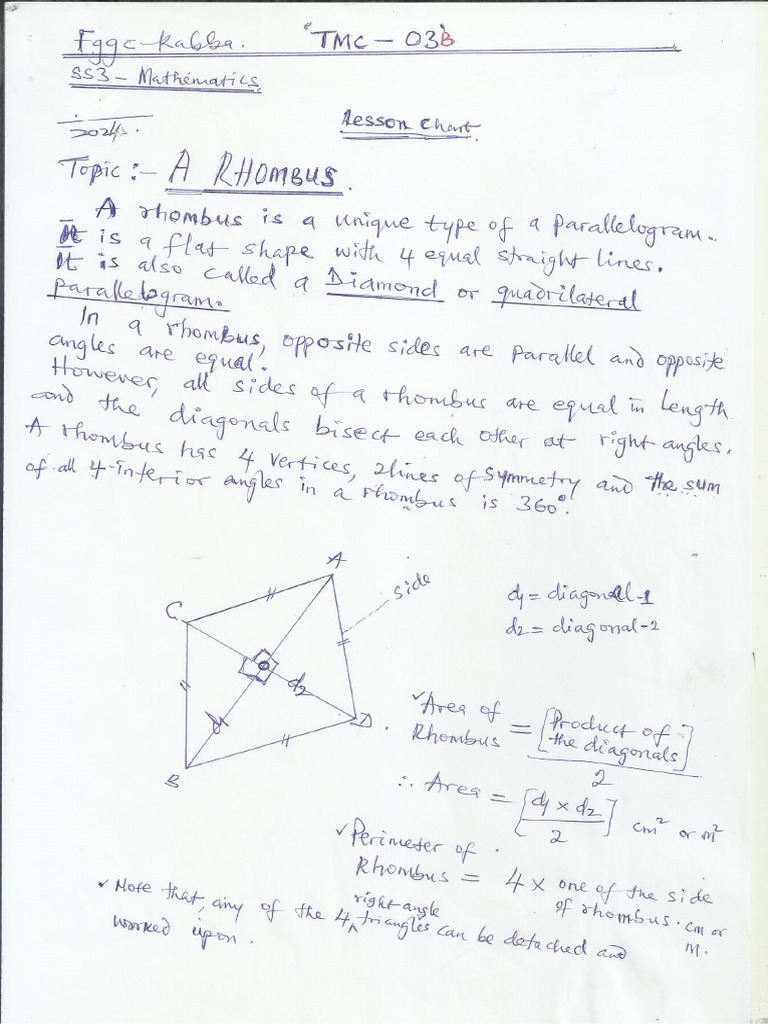 Fggc-Kabba. "TMC - 03B
SS3 - Mathematics.
2024/
Lesson Chart
Topic:- A RHOMBUS.
A rhombus is a unique type of a parallelogram.
It is a flat shape with 4 equal straight lines.
It is also called a Diamond or quadrilateral
parallelogram.
In a rhombus, opposite sides are parallel and opposite
angles are equal.
However, all sides of a rhombus are equal in Length
and the diagonals bisect each other at right angles.
A rhombus has 4 vertices, 2lines of symmetry and the sum
of all 4-interior angles in a rhombus is 360°.
A
side
C
d1 = diagonal-1
d2 = diagonal-2
d2
d1
D
B
✓Area of Rhombus = [Product of the diagonals]
2
∴ Area = [d1 x d2] cm² or m²
2
✓Perimeter of
Rhombus = 4 x one of the side
of rhombus. cm or
M.
✓Note that, any of the 4 right angle triangles can be detached and
worked upon.